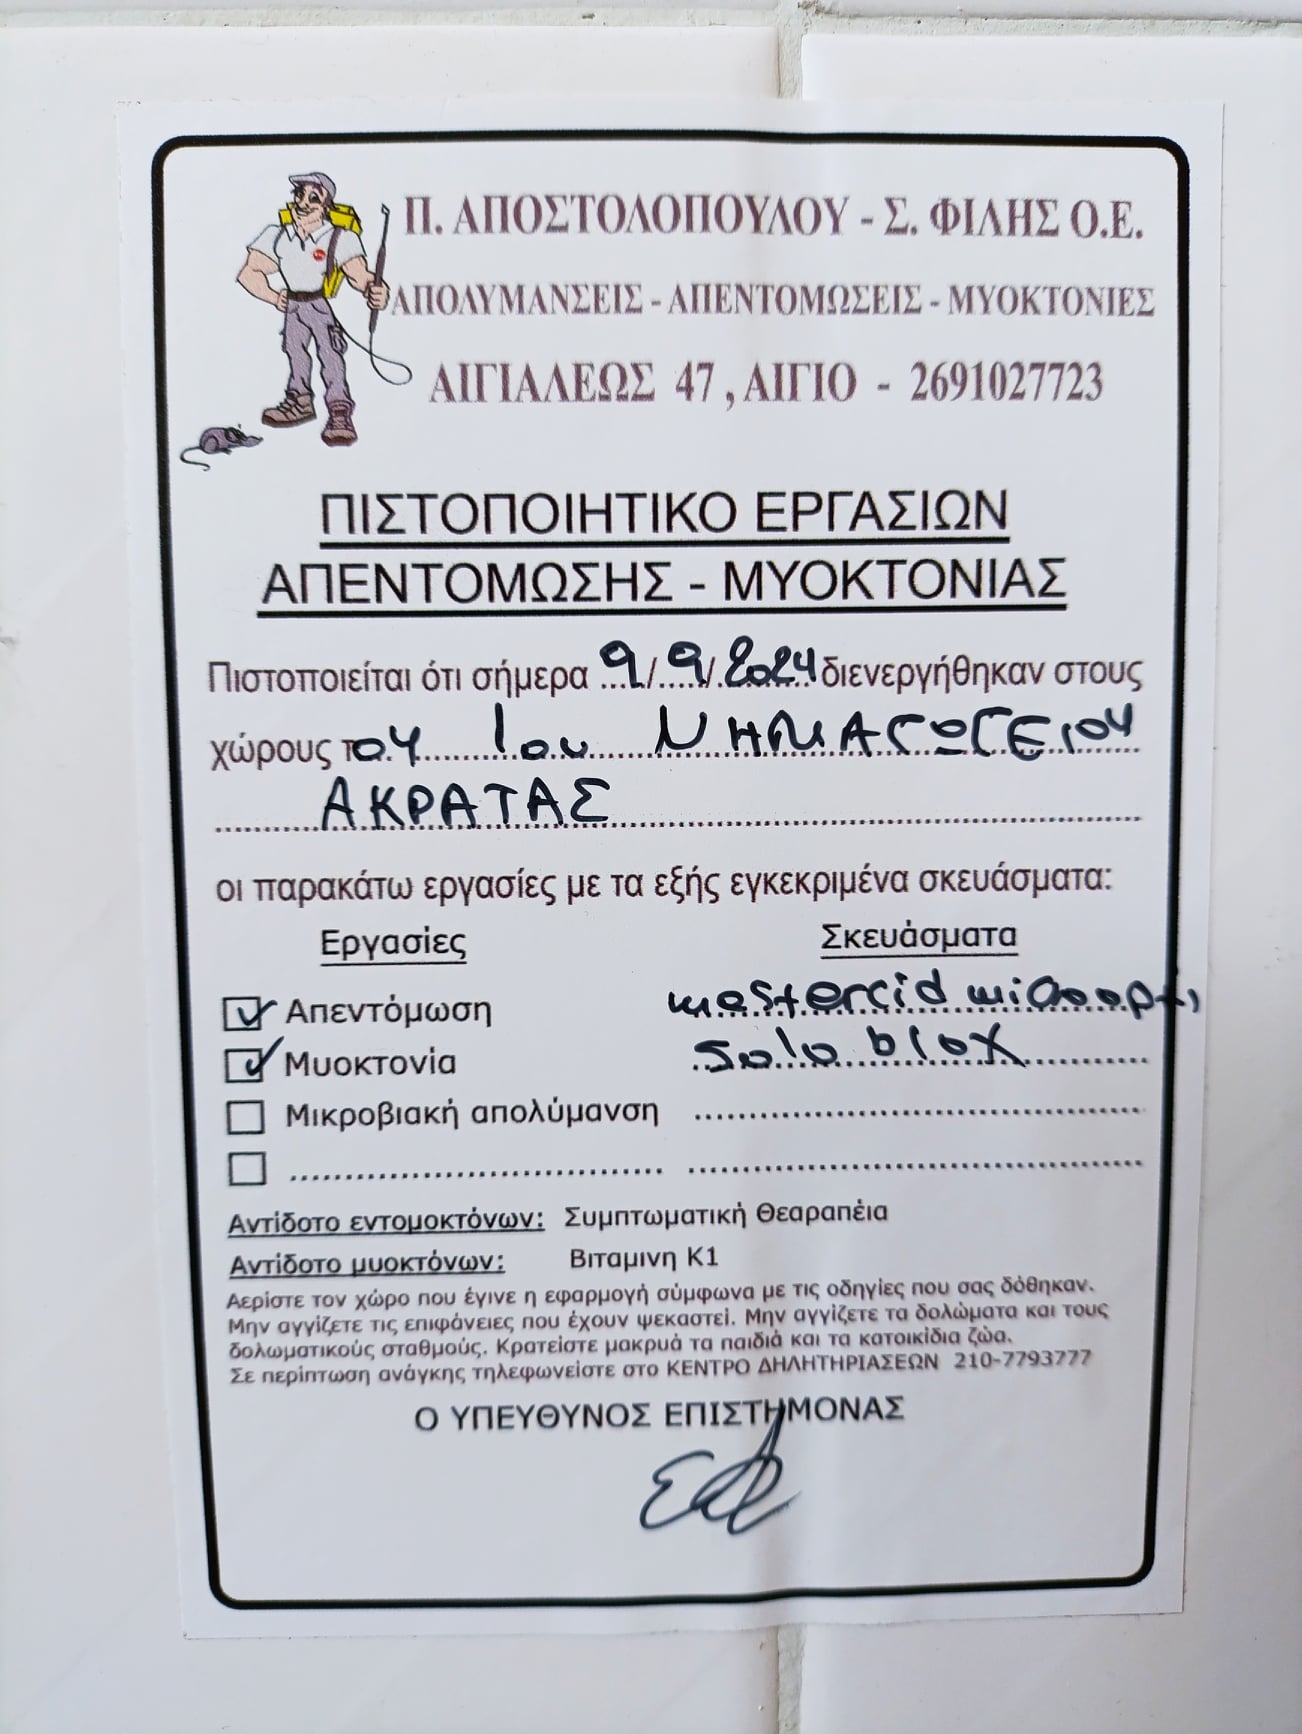 Π. ΑΠΟΣΤΟΛΟΠΟΥΛΟΥ - Σ. ΦΙΛΗΣ Ο.Ε.
ΑΠΟΛΥΜΑΝΣΕΙΣ - ΑΠΕΝΤΟΜΩΣΕΙΣ - ΜΥΟΚΤΟΝΙΕΣ
ΑΙΓΙΑΛΕΩΣ 47 , ΑΙΓΙΟ - 2691027723
ΠΙΣΤΟΠΟΙΗΤΙΚΟ ΕΡΓΑΣΙΩΝ
ΑΠΕΝΤΟΜΩΣΗΣ - ΜΥΟΚΤΟΝΙΑΣ
Πιστοποιείται ότι σήμερα 9/9/2024 διενεργήθηκαν στους
χώρους του 1ου ΝΗΠΙΑΓΩΓΕΙΟΥ
ΑΚΡΑΤΑΣ
οι παρακάτω εργασίες με τα εξής εγκεκριμένα σκευάσματα:
Εργασίες Σκευάσματα
Απεντόμωση mastercid
Μυοκτονία solo blox
Μικροβιακή απολύμανση
Αντίδοτο εντομοκτόνων: Συμπτωματική Θεαραπέια
Αντίδοτο μυοκτόνων: Βιταμινη Κ1
Αερίστε τον χώρο που έγινε η εφαρμογή σύμφωνα με τις οδηγίες που σας δόθηκαν.
Μην αγγίζετε τις επιφάνειες που έχουν ψεκαστεί. Μην αγγίζετε τα δολώματα και τους
δολωματικούς σταθμούς. Κρατείστε μακρυά τα παιδιά και τα κατοικίδια ζώα.
Σε περίπτωση ανάγκης τηλεφωνείστε στο ΚΕΝΤΡΟ ΔΗΛΗΤΗΡΙΑΣΕΩΝ 210-7793777
Ο ΥΠΕΥΘΥΝΟΣ ΕΠΙΣΤΗΜΟΝΑΣ